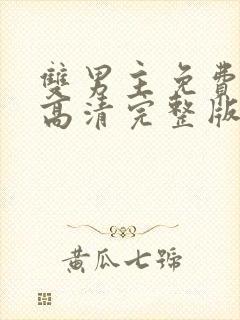 雙男主免費
高清完整版
黃瓜七號